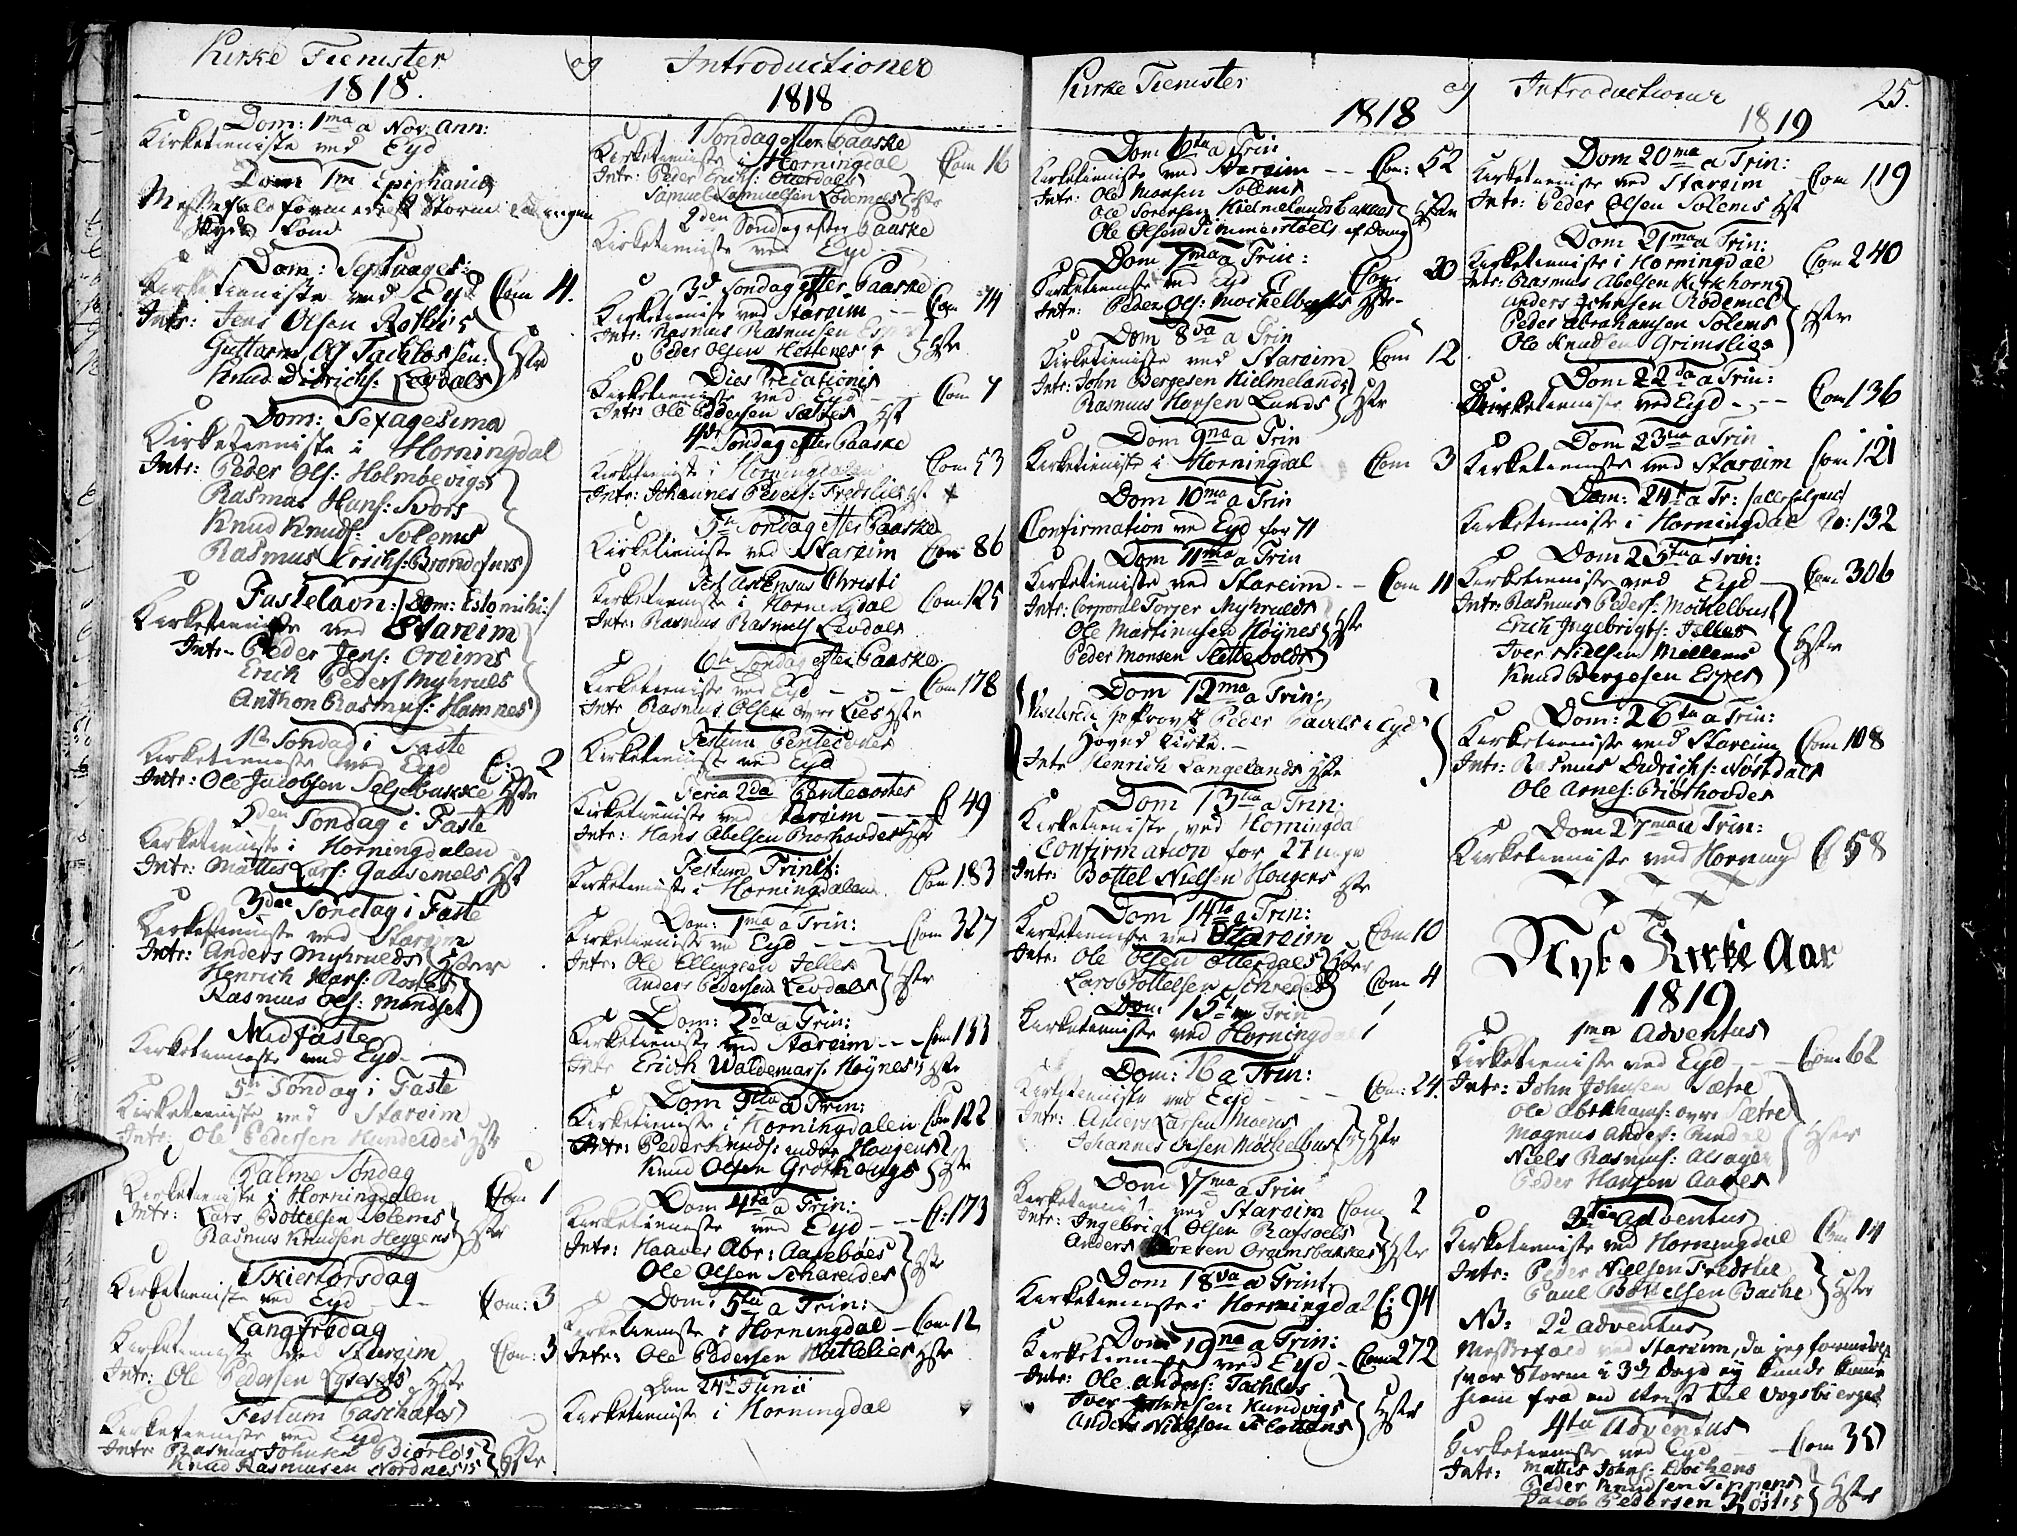 Kirke Tienister og Introductioner
1818. 1818
Dom: 1ma a Nov. Ann:
Kirketieniste ved Eyd
Dom 1m Epiphania
Messefald formedelst Storm saa ingen
Skyds kom
Dom: Septuages:
Kirketieniste ved Eyd Com 4.
Intr: Jens Olsen
Guttorm Ols Tachlos
Knud Didrichs: Levdals Hstr
Dom: Sexagesima
Kirketieniste i Horningdal
Intr: Peder Ols: Holmøevigs
Rasmus Hans: Svors
Knud Knuds: Solems
Rasmus Erichs:
Fastelavn: /Dom: Estomihi:/
Kirketieniste ved Stareim
Intr- Peder Jens: Oreims
Erich Peders Myhrues
Anthon Rasmus: Hamnes
1st Søndag i Faste
Kirketieniste ved Eyd C: 2
Intr: Ole Jacobsen Seljebakke Hstr
2den Søndag i Faste
Kirketieniste i Horningdalen
Intr: Mattis Lars: Gausemels Hst
3die Søndag i Faste
Kirketieniste ved Stareim
Intr: Anders Myhrulds
Henrich Hans:
Rasmus Ols: Hstr
Midfaste
Kirketieniste ved Eyd
5te Søndag i Faste
Kirketieniste ved Stareim
Intr: Ole Pedersen Hundeides Hstr
Palme Søndag
Kirketieniste i Horningdalen Com 1
Intr: Lars Bottelsen Solems
Rasmus Knudsen Heggens Hstr
Skiertorsdag
Kirketieniste ved Eyd Com: 3
Langfredag
Kirketieniste ved Stareim Com: 3
Intr: Ole Pedersen Hstr
Festum Paschatos
Kirketieniste ved Eyd
Intr Rasmus Johnsen Biørlos
Knud Rasmusen Nordnes Hstr
1 Søndag efter Paaske
Kirketieniste i Horningdal Com 16
Intr: Peder Erichs: Otterdals
Samuel Samuelsen Lødemels Hstr
2den Søndag efter Paaske
Kirketieniste ved Eyd
3d Søndag efter Paaske
Kirketieniste ved Stareim -- Com 74
Intr: Rasmus Rasmusen
Peder Olsen Hestenes Hstr
Dies Precationis
Kirketieniste ved Eyd Com 7
Intr: Ole Pedersen Sætres Hst
4de Søndag efter Paaske
Kirketieniste i Horningdalen Com 53
Intr: Johannes Peders: Fredslies Hst
5te Søndag efter Paaske
Kirketieniste ved Stareim Com 86
Fest Ascensus Christi
Kirketieniste i Horningdal Com 125
Intr: Rasmus Rasmuss Levdals
6te Søndag efter Paaske
Kirketieniste ved Eyd - - Com 178
Intr Rasmus Olsen øvre Lies Hstr
Festum Pentecostes
Kirketieniste ved Eyd
Feria 2da Pentecostes
Kirketieniste ved Stareim - C 49
Intr: Hans Abelsen Biørhovdes Hstr
Festum Trinit:
Kirketieniste i Horningdalen Com 183
Dom: 1ma a Trin:
Kirketieniste ved Eyd - - - Com 327
Intr: Ole Ellingsen Jelles
Anders Pedersen Levdals Hstr
Dom: 2da a Trin:
Kirketieniste ved Stareim - - -
Intr Erich Waldemars: Høynes Hstr
Dom 3tia a Trin:
Kirketieniste i Horningdalen Com 122
Intr: Peder Knuds: indre Hougens
Knud Olsen Hstr
Dom 4ta a Trin:
Kirketieniste ved Eyd - - - C: 173
Intr: Haaver Abr: Aasebøes
Ole Olsen Schareides Hstr
Dom: 5ta a Trin:
Kirketieniste i Horningdal - Com 12
Intr: Ole Pedersen Hstr
Den 24de Junii
Kirketieniste i Horningdal
Kirke Tienister og Introductioner 25.
1818 1819
Dom 6ta a Trin
Kirketieniste ved Stareim -- Com: 52
Intr: Ole Monsen Solems
Ole Sorensen Hielmelandsbakkes
Ole Olsen Hstr
Dom 7ma a Trin:
Kirketieniste ved Eyd Com: 20
Intr: Peder Ols: Mochelbusts Hstr
Dom 8va a Trin
Kirketieniste ved Stareim Com 12
Intr: John Bergesen Hielmelands
Rasmus Hansen Lunds Hstr
Dom 9na a Trin
Kirketieniste i Horningdal Com 3
Dom 10ma a Trin
Confirmation ved Eyd for 71
Dom 11ma a Trin
Kirketieniste ved Stareim - - Com 11
Intr: Corporal Torger Myhrulds
Ole Martinusen Høynes
Peder Monsen Hstr
Dom 12ma a Trin:
Hr Provst Peder i Eyds
Hoved Kirke. -
Intr Henrich Langelands Hstr
Dom 13tia a Trin:
Kirketieniste ved Horningdal
Confirmation for 27 unge
Intr: Bottel Nielsen Hougens Hstr
Dom 14ta a Trin:
Kirketieniste ved Stareim Com 10
Intr: Ole Olsen Otterdals Hstr
Lars Bottelsen Com 4
Dom: 15ta a Trin
Kirketieniste ved Horningdal
Dom: 16 a Trin:
Kirketieniste ved Eyd - - - Com: 24.
Intr: Anders Larsen
Johannes Olsen Mochelbust Hstr
Dom 17ma a Trin
Kirketieniste ved Stareim Com 2
Intr: Ingebrigt Olsen
Anders Hstr
Dom 18va a Trinit:
Kirketieniste i Horningdal C: 94
Dom 19na a Trin:
Kirketieniste ved Eyd - Com 272
Intr: Ole Anders: Tachlos
Iver Johnsen Hundvigs
Anders Nielsen Hstr
Dom 20ma a Trin:
Kirketieniste ved Stareim Com 119
Intr: Peder Olsen Solems Hst
Dom 21ma a Trin:
Kirketieniste i Horningdal Com 240
Intr: Rasmus Abelsen Kirkhorns
Anders Johnsen Rødemel
Peder Abrahamsen Solems
Ole Knudsen Grimslies Hstr
Dom 22da a Trin:
Kirketieniste ved Eyd - - - Com 136
Dom 23tia a Trin
Kirketieniste ved Stareim Com 121
Dom: 24ta a Tr: /allehelgens/
Kirketieniste i Horningdal Co: 132
Dom 25ta a Trin:
Kirketieniste ved Eyd - Com 306
Intr: Rasmus Peders: Mochelbust
Erich Ingebrigts: Jelles
Iver Nielsen Mellems
Knud Bergesen Espes Hstr
Dom: 26ta a Trin:
Kirketieniste ved Stareim Com 108
Intr: Rasmus Didrichs: Nøstdals
Ole Arnes: Biørhovdes
Dom 27ma a Trin:
Kirketieniste ved Horning C 58
Nyt Kirke Aar
1819
1ma Adventus
Kirketieniste ved Eyd - - - Com 62
Intr: John Johnsen Sætre
Ole Abrahams: øvre Sætre
Magnus Anders:
Niels Rasmus:
Peder Hansen Aases Hstr
3tia Adventus
Kirketieniste ved Horningdal Com 14
Intr: Peder Nielsen Fredslie
Paul Bottelsen Bache Hstr
NB: 2d Adventus
Messefald ved Stareim, da jeg formedelst
svar Storm i 3de Dage ey kunde komme
hiem fra en Reise til Vogsbierget
4ta Adventus
Kirketieniste ved Eyd - - Com 35
Intr: Mattis Johns:
Peder Knudsen
Jacob Pedersen Hstr